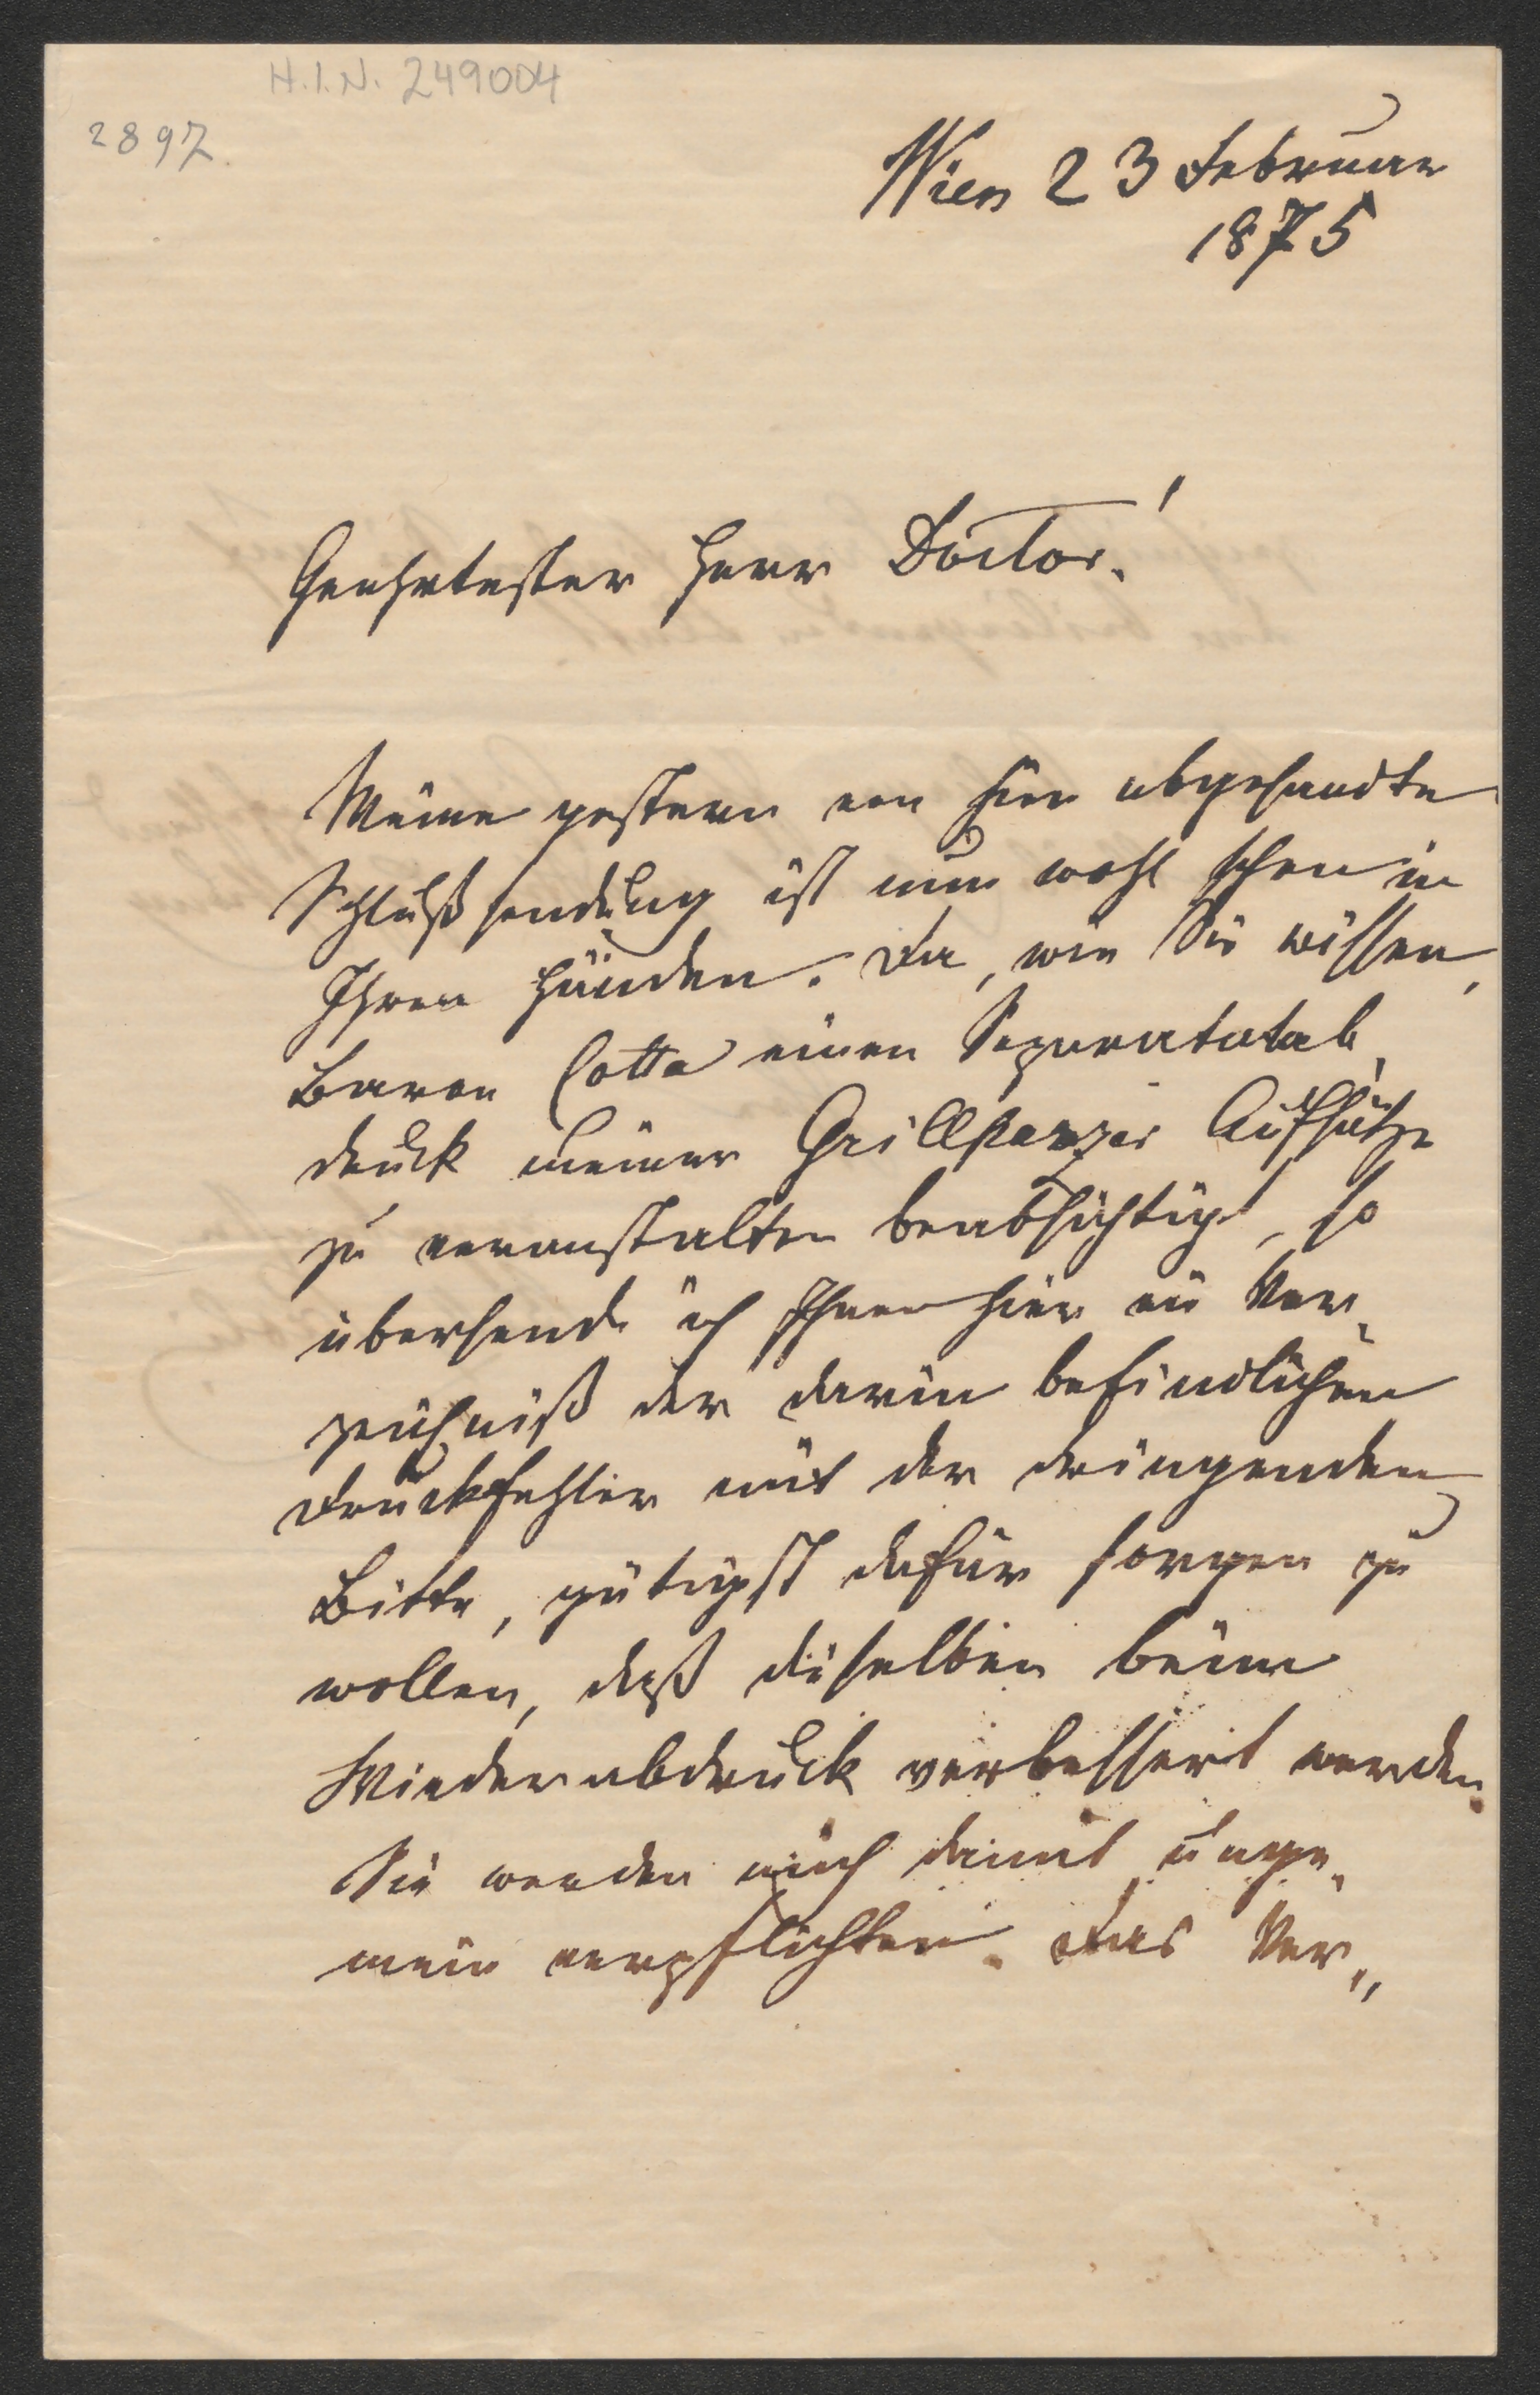 H.I.N. 249004
2897.
Wien 23 Februar
1875
Geehrtester Herr Doctor!
Meine gestern von hier abgesandte
Schlußsendung ist nun wohl schon in
Ihren Händen. Da, wie Sie wissen,
Baron Cotta einen Separatab-
druck meiner Grillparzer Aufsätze
zu veranstalten beabsichtigt, so
übersende ich Ihnen hier ein Ver-
zeichniß der darin befindlichen
Druckfehler mit der dringenden
Bitte, gütigst dafür sorgen zu
wollen, daß dieselben beim
Wiederabdruck verbessert werden.
Sie werden mich damit unge-
mein verpflichten. Das Ver-